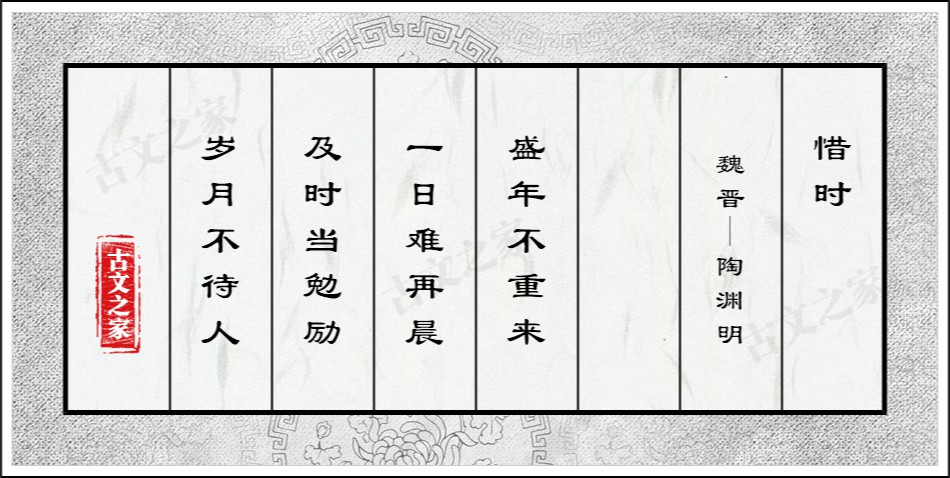 惜时
魏晋—陶渊明
盛年不重来
一日难再晨
及时当勉励
岁月不待人
古文之家
古文之家
古文之家
古文之家